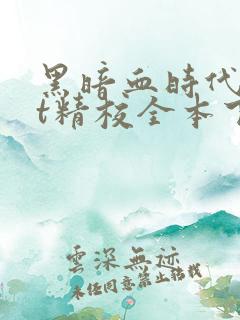 黑暗血時代
t精校全本
雲深無迹
未经同意禁止转载